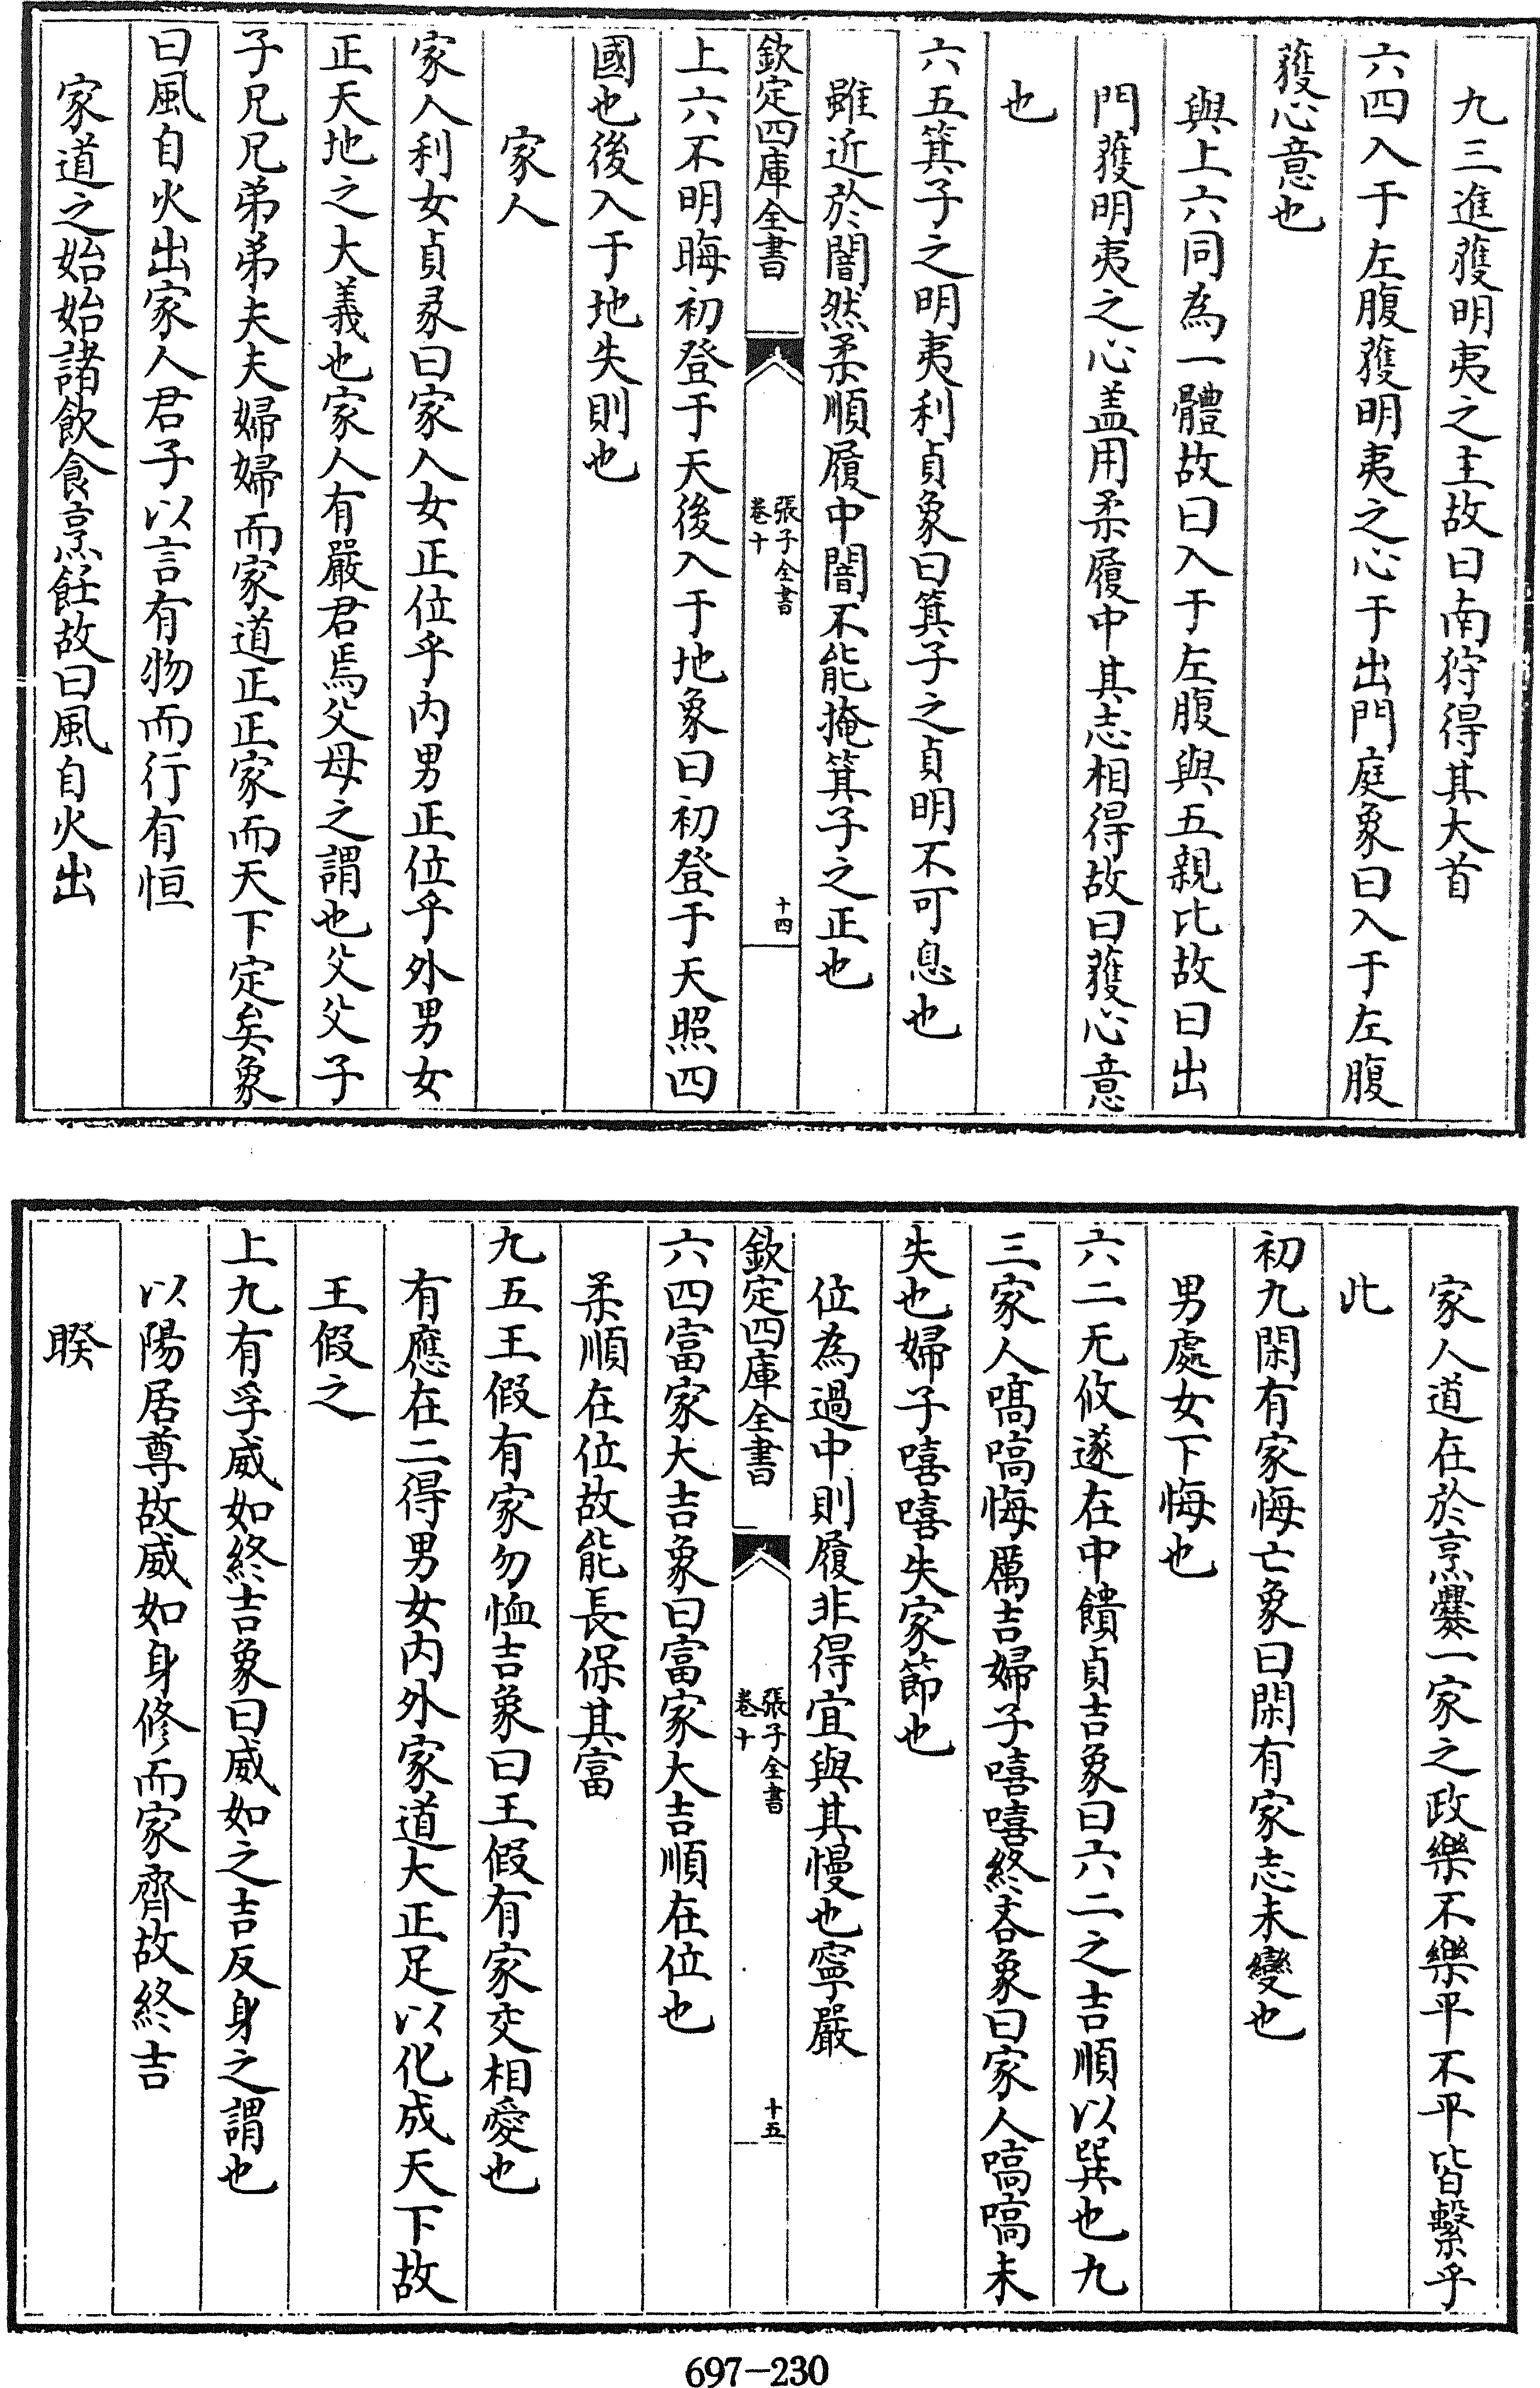 九三進獲明夷之主故曰南狩得其大首
六四入于左腹獲明夷之心于出門庭象曰入于左腹
獲心意也
與上六同為一體故曰入于左腹與五親比故曰出
門獲明夷之心盖用柔履中其志相得故曰獲心意
也
六五箕子之明夷利貞象曰箕子之貞明不可息也
雖近於闇然柔順履中闇不能掩箕子之正也
欽定四庫全書
張子全書
卷十
十四
上六不明晦初登于天後入于地象曰初登于天照四
國也後入于地失則也
家人
家人利女貞彖曰家人女正位乎内男正位乎外男女
正天地之大義也家人有嚴君焉父母之謂也父父子
子兄兄弟弟夫夫婦婦而家道正正家而天下定矣象
曰風自火出家人君子以言有物而行有恒
家道之始始諸飲食烹飪故曰風自火出
家人道在於烹爨一家之政樂不樂平不平皆繫乎
此
初九閑有家悔亡象曰閑有家志未變也
男處女下悔也
六二无攸遂在中饋貞吉象曰六二之吉順以巽也九
三家人嗃嗃悔厲吉婦子嘻嘻終吝象曰家人嗃嗃未
失也婦子嘻嘻失家節也
位為過中則履非得宜與其慢也寧嚴
欽定四庫全書
張子全書
卷十
十五
六四富家大吉象曰富家大吉順在位也
柔順在位故能長保其富
九五王假有家勿恤吉象曰王假有家交相愛也
有應在二得男女内外家道大正足以化成天下故
王假之
上九有孚威如終吉象曰威如之吉反身之謂也
以陽居尊故威如身修而家齊故終吉
睽
697-230